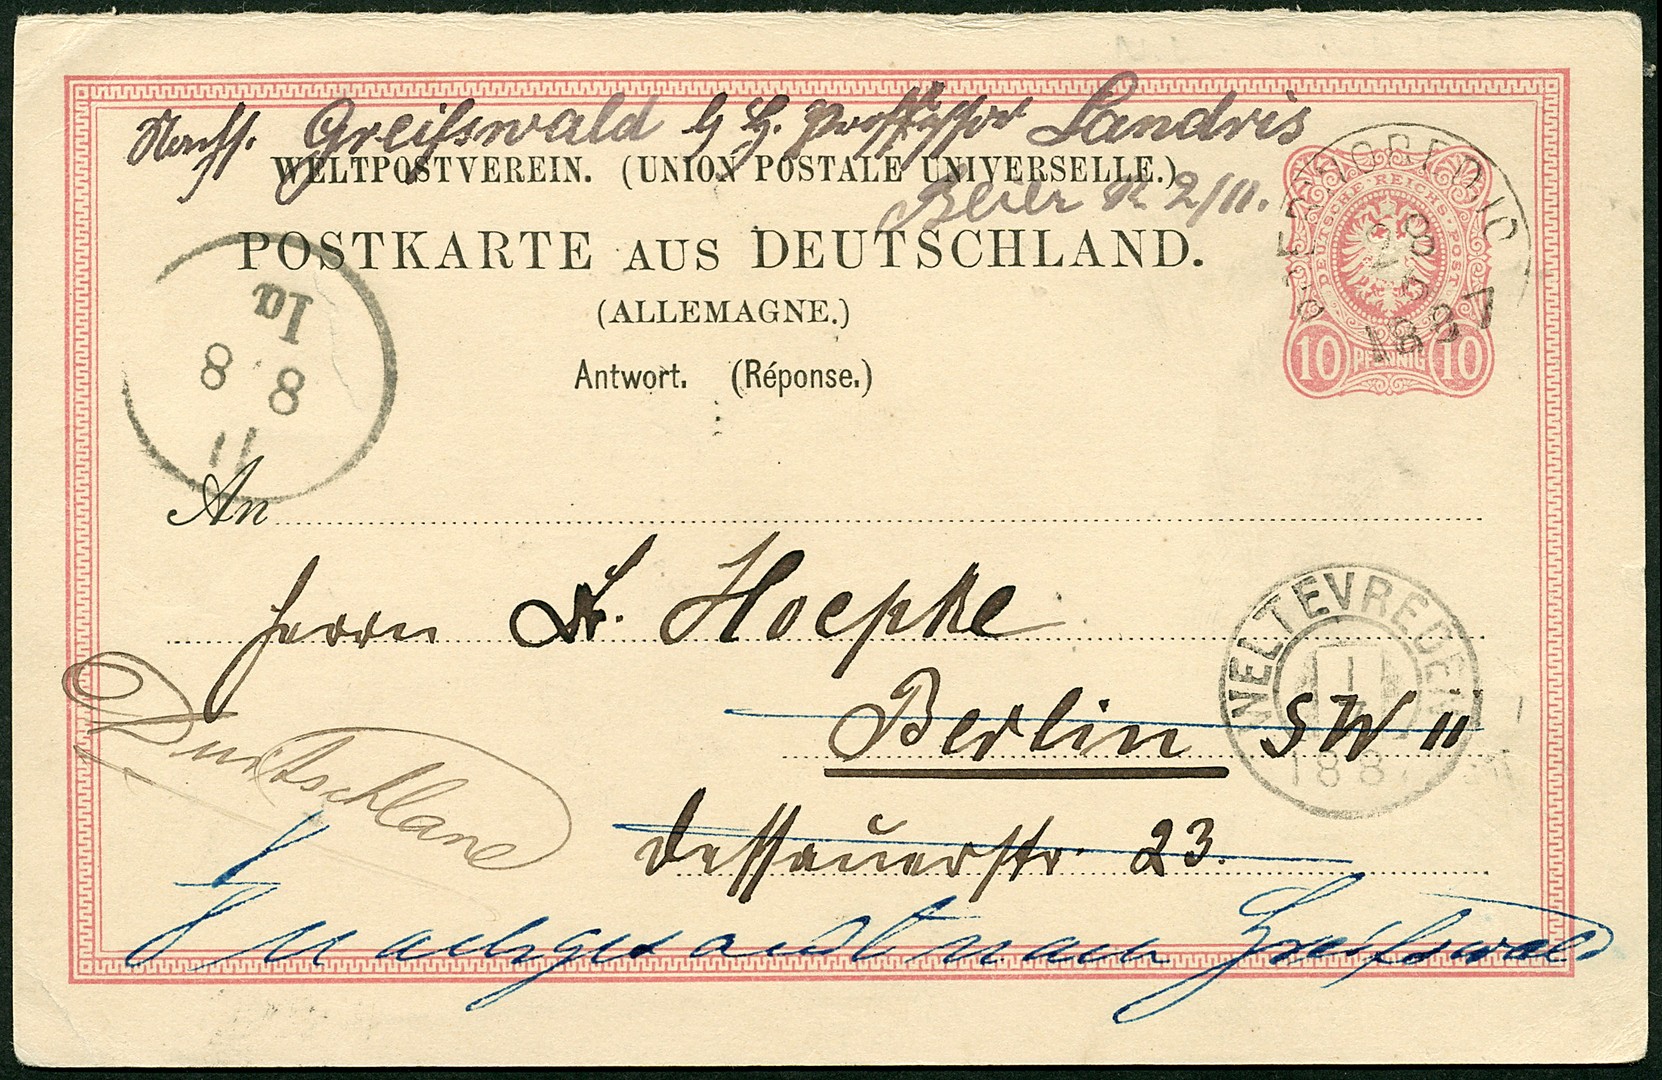 Greifswald b. H. Professor Landois
WELTPOSTVEREIN. (UNION POSTALE UNIVERSELLE.)
2/11.
POSTKARTE AUS DEUTSCHLAND.
(ALLEMAGNE.)
Antwort. (Réponse.)
DEUTSCHE REICHS-POST
10 PFENNIG 10
1887
Ia
8 8
11
An
Herrn Dr. Hoepke
Berlin SW 11
WELTEVREDEN
188
Dessauerstr. 23.
Deutschland
nachgesandt nach Greifswald